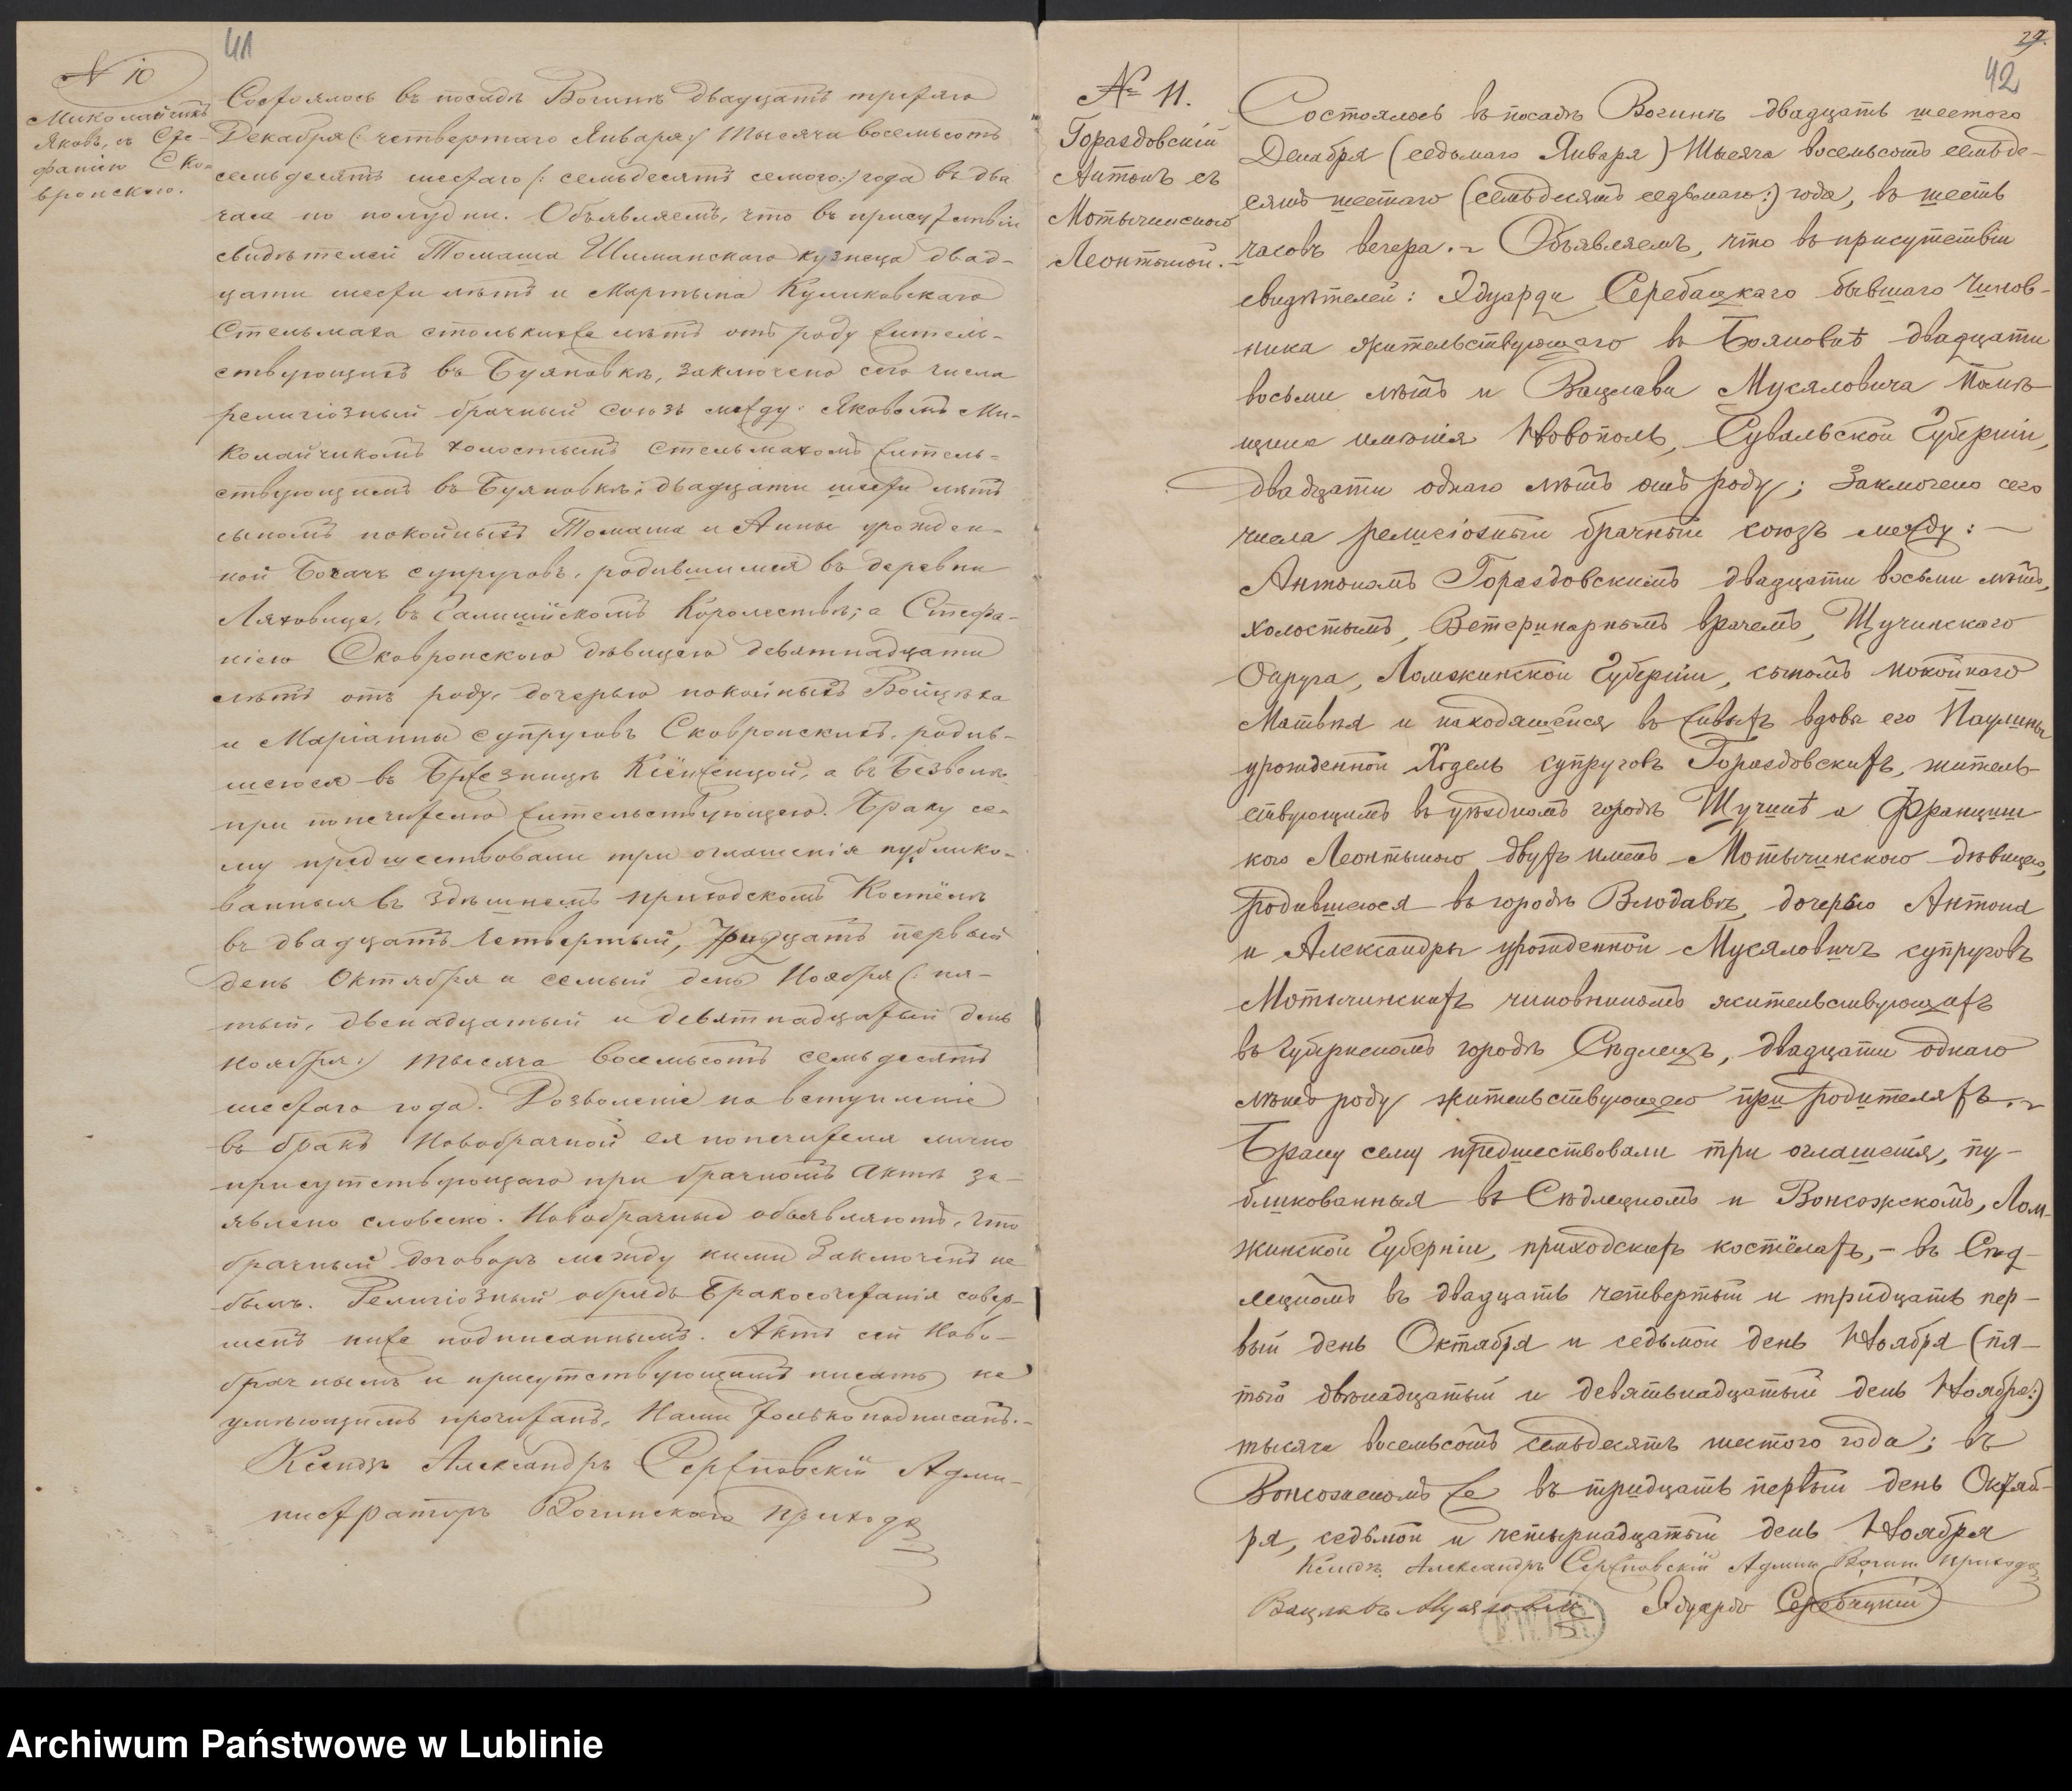 41
N 10
Миколайчикъ
Яковъ, съ Сте-
фанію Ско-
вронскою.
Состоялось въ посадѣ Вогинѣ двадцать третяго
Декабря (: четвертаго Января :) тысяча восемьсотъ
семьдесятъ шестаго (: семьдесятъ семого :) года въ два
часа по полудни. Объявляемъ, что въ присутствіи
свидѣтелей Томаша Шиманскаго кузнеца двад-
цати шести лѣтъ и Мартына Куликовскаго
Стельмаха столькихже лѣтъ отъ роду житель-
ствующихъ въ Буяновкѣ, заключено сего числа
религіозный брачный союзъ между: Яковомъ Ми-
колайчикомъ холостымъ стельмахомъ житель-
ствующимъ въ Буяновкѣ, двадцати шести лѣтъ
сыномъ покойныхъ Томаша и Анны урожден-
ной Богачъ супруговъ, родившимся въ деревни
Ляховице, въ Галиційскомъ Королествѣ; а Стефа-
ніею Сковронскою дѣвицею девятнадцати
лѣтъ отъ роду, дочерью покойныхъ Войцѣха
и Маріанны супруговъ Сковронскихъ, родив-
шеюся въ Бржезницѣ Ксёнженцой, а въ Безволѣ
при попечителю жительствующею. Браку се-
му предшествовали три оглашенія публико-
ванныя въ здѣшнемъ приходскомъ Костёлѣ
въ двадцать четвертый, тридцать первый
день Октября и семый день Ноября (: пя-
тый, двенадцатый и девятнадцатый день
Ноября :) тысяча восемьсотъ семьдесятъ
шестаго года. Дозволеніе на вступленіе
въ бракъ Новобрачной ея попечителя лично
присутствующаго при брачномъ актѣ за-
явлено словесно. Новобрачные объявляютъ, что
брачный договоръ между ними заключенъ не
былъ. Религіозный обрядъ бракосочетанія совер-
шенъ ниже подписаннымъ. Актъ сей Ново-
брачнымъ и присутствующимъ писать не
умѣющимъ прочитанъ, Нами только подписанъ.
Ксендзъ Александръ Сержповскій Адми-
нистраторъ Вогинскаго прихода
29.
42
№ 11.
Гораздовскій
Антонъ съ
Мотычинскою
Леонтыной.
Состоялось въ посадѣ Вогинѣ двадцать шестого
Декабря (седьмаго Января) тысяча восемьсотъ семьде-
сятъ шестаго (семьдесятъ седьмаго:) года, въ шесть
часовъ вечера. Объявляемъ, что въ присутствіи
свидѣтелей: Эдуарда Серебацкаго бывшаго Чинов-
ника жительствующаго въ Бояновкѣ двадцати
восьми лѣтъ и Вацлава Мусяловича помѣ-
щика имѣнія Новополь, Сувалькской Губерніи,
двадцати одного лѣтъ отъ роду; Заключено сего
числа религіозный брачный союзъ между:
Антономъ Гораздовскимъ двадцати восьми лѣтъ,
холостымъ, Ветеринарнымъ врачемъ, Щучинскаго
Округа, Ломжинской Губерніи, сыномъ покойнаго
Матвѣя и находящейся въ живыхъ вдова его Паулины
урожденной Ходель супруговъ Гораздовскихъ, житель-
ствующимъ въ уѣздномъ городѣ Щучинѣ и Францишк
кою Леонтыною двухъ именъ Мотычинскою дѣвицею,
родившеюся въ городѣ Влодавѣ, дочерью Антона
и Александры урожденной Мусяловичъ супруговъ
Мотычинскихъ чиновникомъ жительствующихъ
въ Губернскомъ городѣ Сѣдлецѣ, двадцати одного
лѣтъ роду жительствующею при родителяхъ.
Браку сему предшествовали три оглашенія, пу-
бликованныя въ Сѣдлецкомъ и Вонсожскомъ, Лом-
жинской Губерніи, приходскихъ костёлахъ, - въ Сѣд-
лецкомъ въ двадцать четвертый и тридцать пер-
вый день Октября и седьмой день Ноября (пя-
тый двѣнадцатый и девятьнадцатый день Ноября:)
тысяча восемьсотъ семьдесятъ шестого года; въ
Вонсожскомъ же въ тридцать первый день Октяб-
ря, седьмой и четырнадцатый день Ноября
Ксендзъ Александръ Сержповскій Админ. Вогин. прихода
Вацлавъ Мусяловичъ Эдуардъ Серебацкій
Archiwum Państwowe w Lublinie